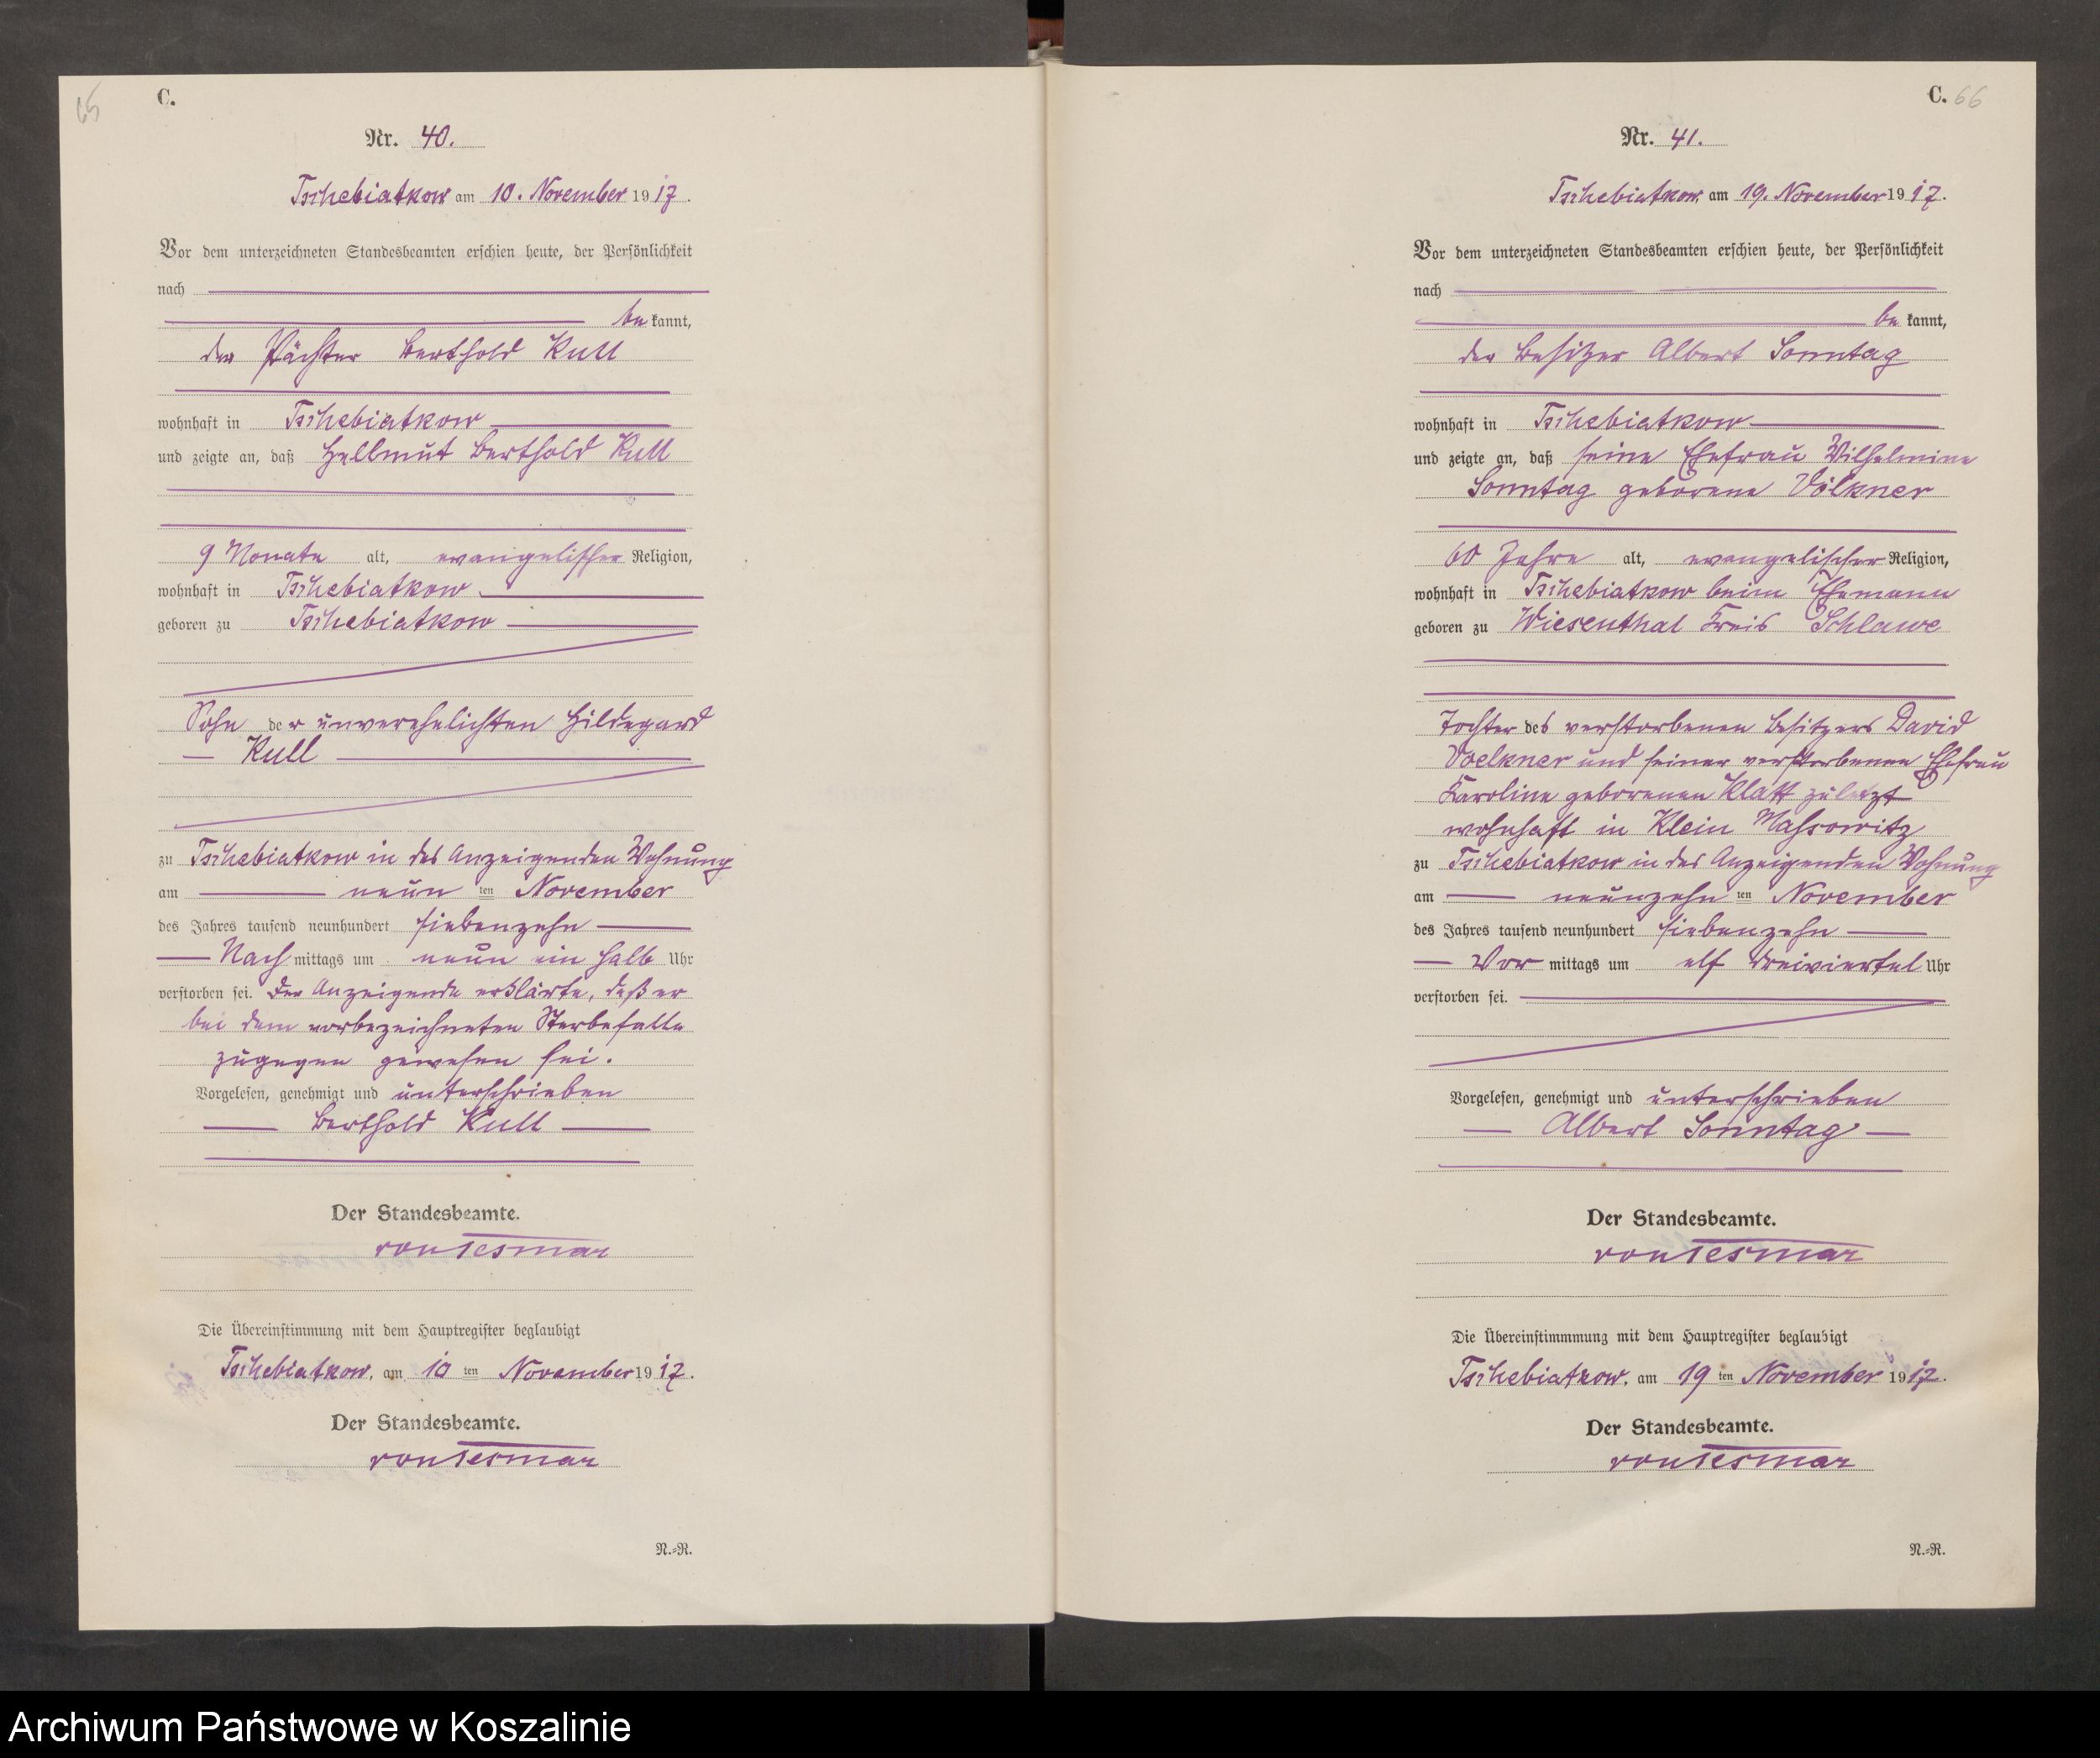 65
C.
Nr. 40.
Tschebiatkow am 10. November 1917.
Vor dem unterzeichneten Standesbeamten erschien heute, der Persönlichkeit
nach
be kannt,
der Pächter Berthold Kull
wohnhaft in Tschebiatkow
und zeigte an, daß Hellmut Berthold Kull
9 Monate alt, evangelischer Religion,
wohnhaft in Tschebiatkow
geboren zu Tschebiatkow
Sohn der unverehelichten Hildegard
Kull
zu Tschebiatkow in des Anzeigenden Wohnung
am neun ten November
des Jahres tausend neunhundert siebenzehn
Nach mittags um neun ein halb Uhr
verstorben sei. Der Anzeigende erklärte, daß er
bei dem vorbezeichneten Sterbefalle
zugegen gewesen sei.
Vorgelesen, genehmigt und unterschrieben
Berthold Kull
Der Standesbeamte.
von Tesmar
Die Übereinstimmung mit dem Hauptregister beglaubigt
Tschebiatkow, am 10 ten November 1917.
Der Standesbeamte.
von Tesmar
N.=R.
C. 66
Nr. 41.
Tschebiatkow, am 19. November 1917.
Vor dem unterzeichneten Standesbeamten erschien heute, der Persönlichkeit
nach
be kannt,
der Besitzer Albert Sonntag
wohnhaft in Tschebiatkow
und zeigte an, daß seine Ehefrau Wilhelmine
Sonntag geborene Völkner
60 Jahre alt, evangelischer Religion,
wohnhaft in Tschebiatkow beim Ehemann
geboren zu Wiesenthal Kreis Schlawe
Tochter des verstorbenen Besitzers David
Voelkner und seiner verstorbenen Ehefrau
Karoline geborenen Klatt zuletzt
wohnhaft in Klein Massowitz
zu Tschebiatkow in des Anzeigenden Wohnung
am neunzehn ten November
des Jahres tausend neunhundert siebenzehn
Vor mittags um elf dreiviertel Uhr
verstorben sei.
Vorgelesen, genehmigt und unterschrieben
Albert Sonntag
Der Standesbeamte.
von Tesmar
Die Übereinstimmmung mit dem Hauptregister beglaubigt
Tschebiatkow, am 19 ten November 1917.
Der Standesbeamte.
von Tesmar
N.=R.
Archiwum Państwowe w Koszalinie